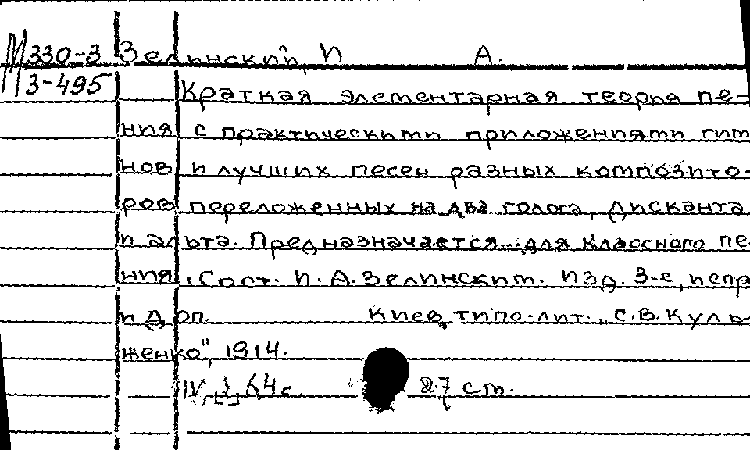 М330-3 Зелинский, И А.
3-495 Краткая элементарная теория пе-
ния с практическими приложениями гим
нов и лучших песен разных композито-
ров переложенных на два голоса, дисканта
и альта. Предназначается для классного пе-
ния. Сост. И. А. Зелинский. Изд. 3-е, испр
и доп. Киев, типо-лит. „С.В. Куль-
женко", 1914.
IV, 64 с 27 см.